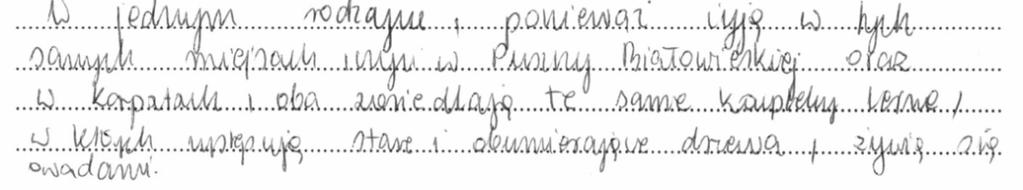 W jednym rodzaju, ponieważ żyją w tych
samych miejscach w Puszczy Białowieskiej oraz
w Karpatach i oba zasiedlają te same kompleksy leśne,
w których występują stare i obumierające drzewa, żywią się
owadami.